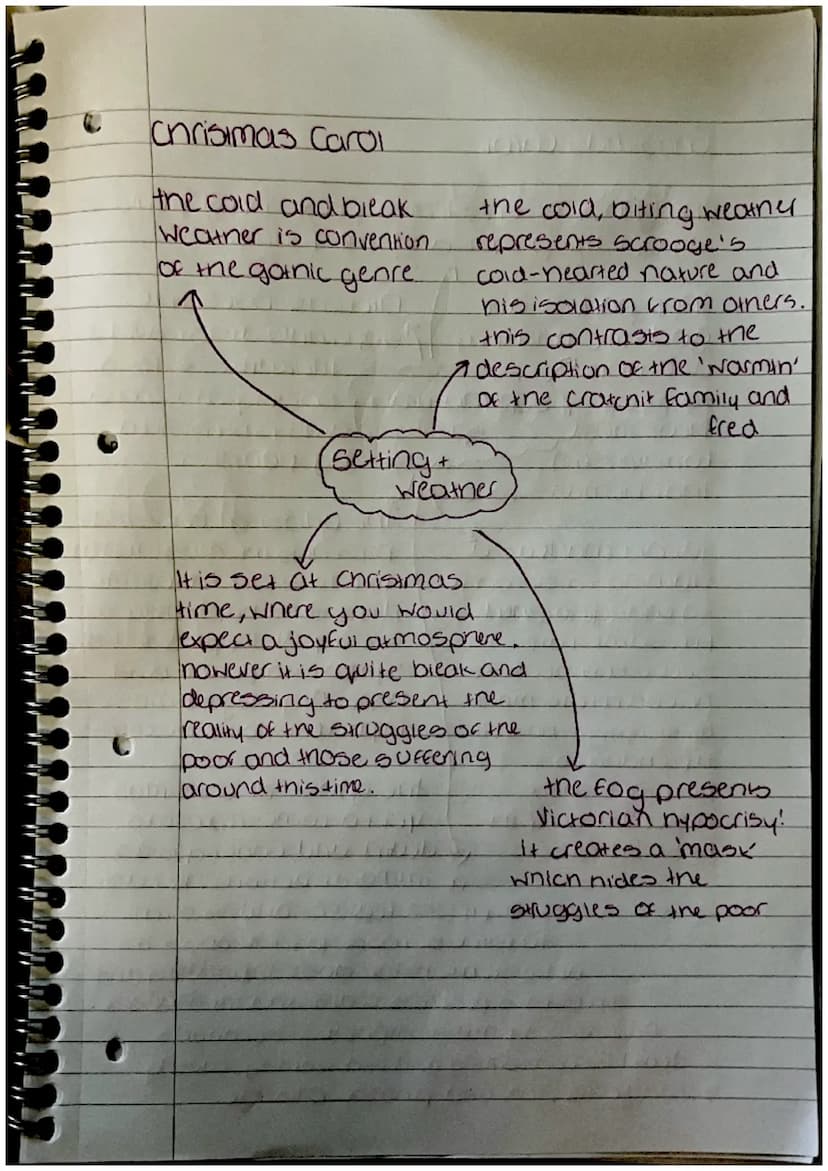 Christmas Carol
the cold and bleak
weather is convention
of the gothic genre
the cold, biting weather
represents scrooge's
cold-hearted nature and
his isolation from others.
this contrasts to the
description of the 'warmth'
of the cratchit family and
fred
setting +
weather
It is set at christmas
time, where you would
expect a joyful atmosphere.
however it is quite bleak and
depressing to present the
reality of the struggles of the
poor and those suffering
around this time.
the fog presents
Victorian hypocrisy!
It creates a 'mask'
which hides the
struggles of the poor